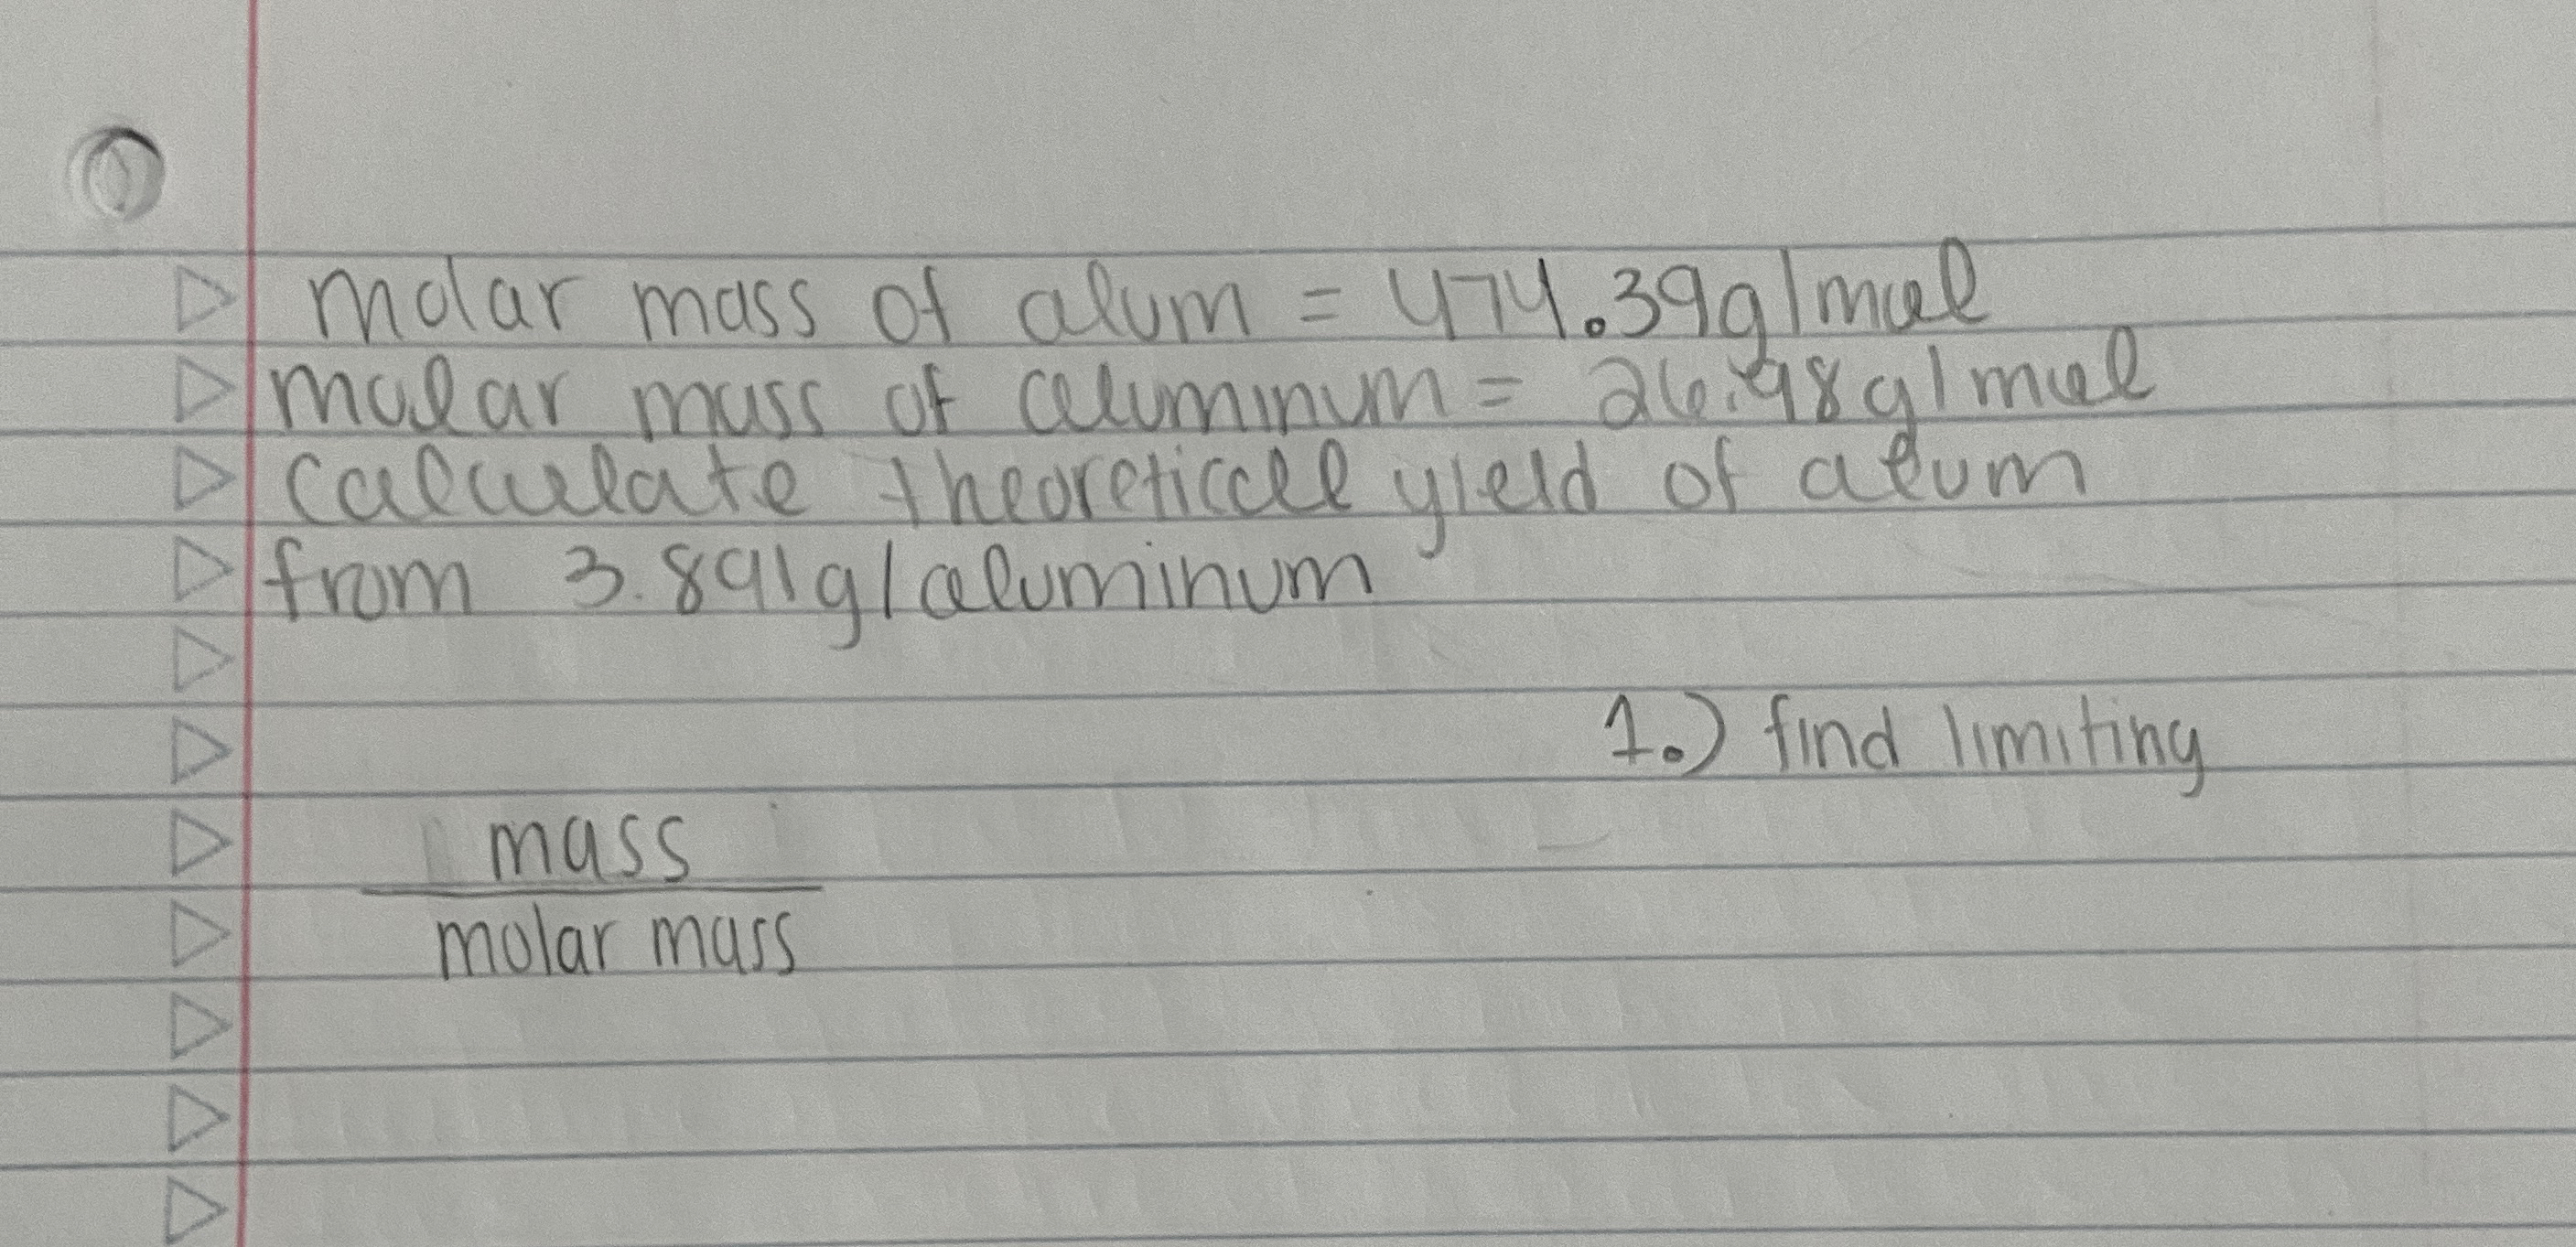 molar mass of alum = 474.39g/mol
molar mass of aluminum = 26.98g/mol
calculate theoretical yield of alum
from 3.891g/aluminum
1.) find limiting
mass
molar mass